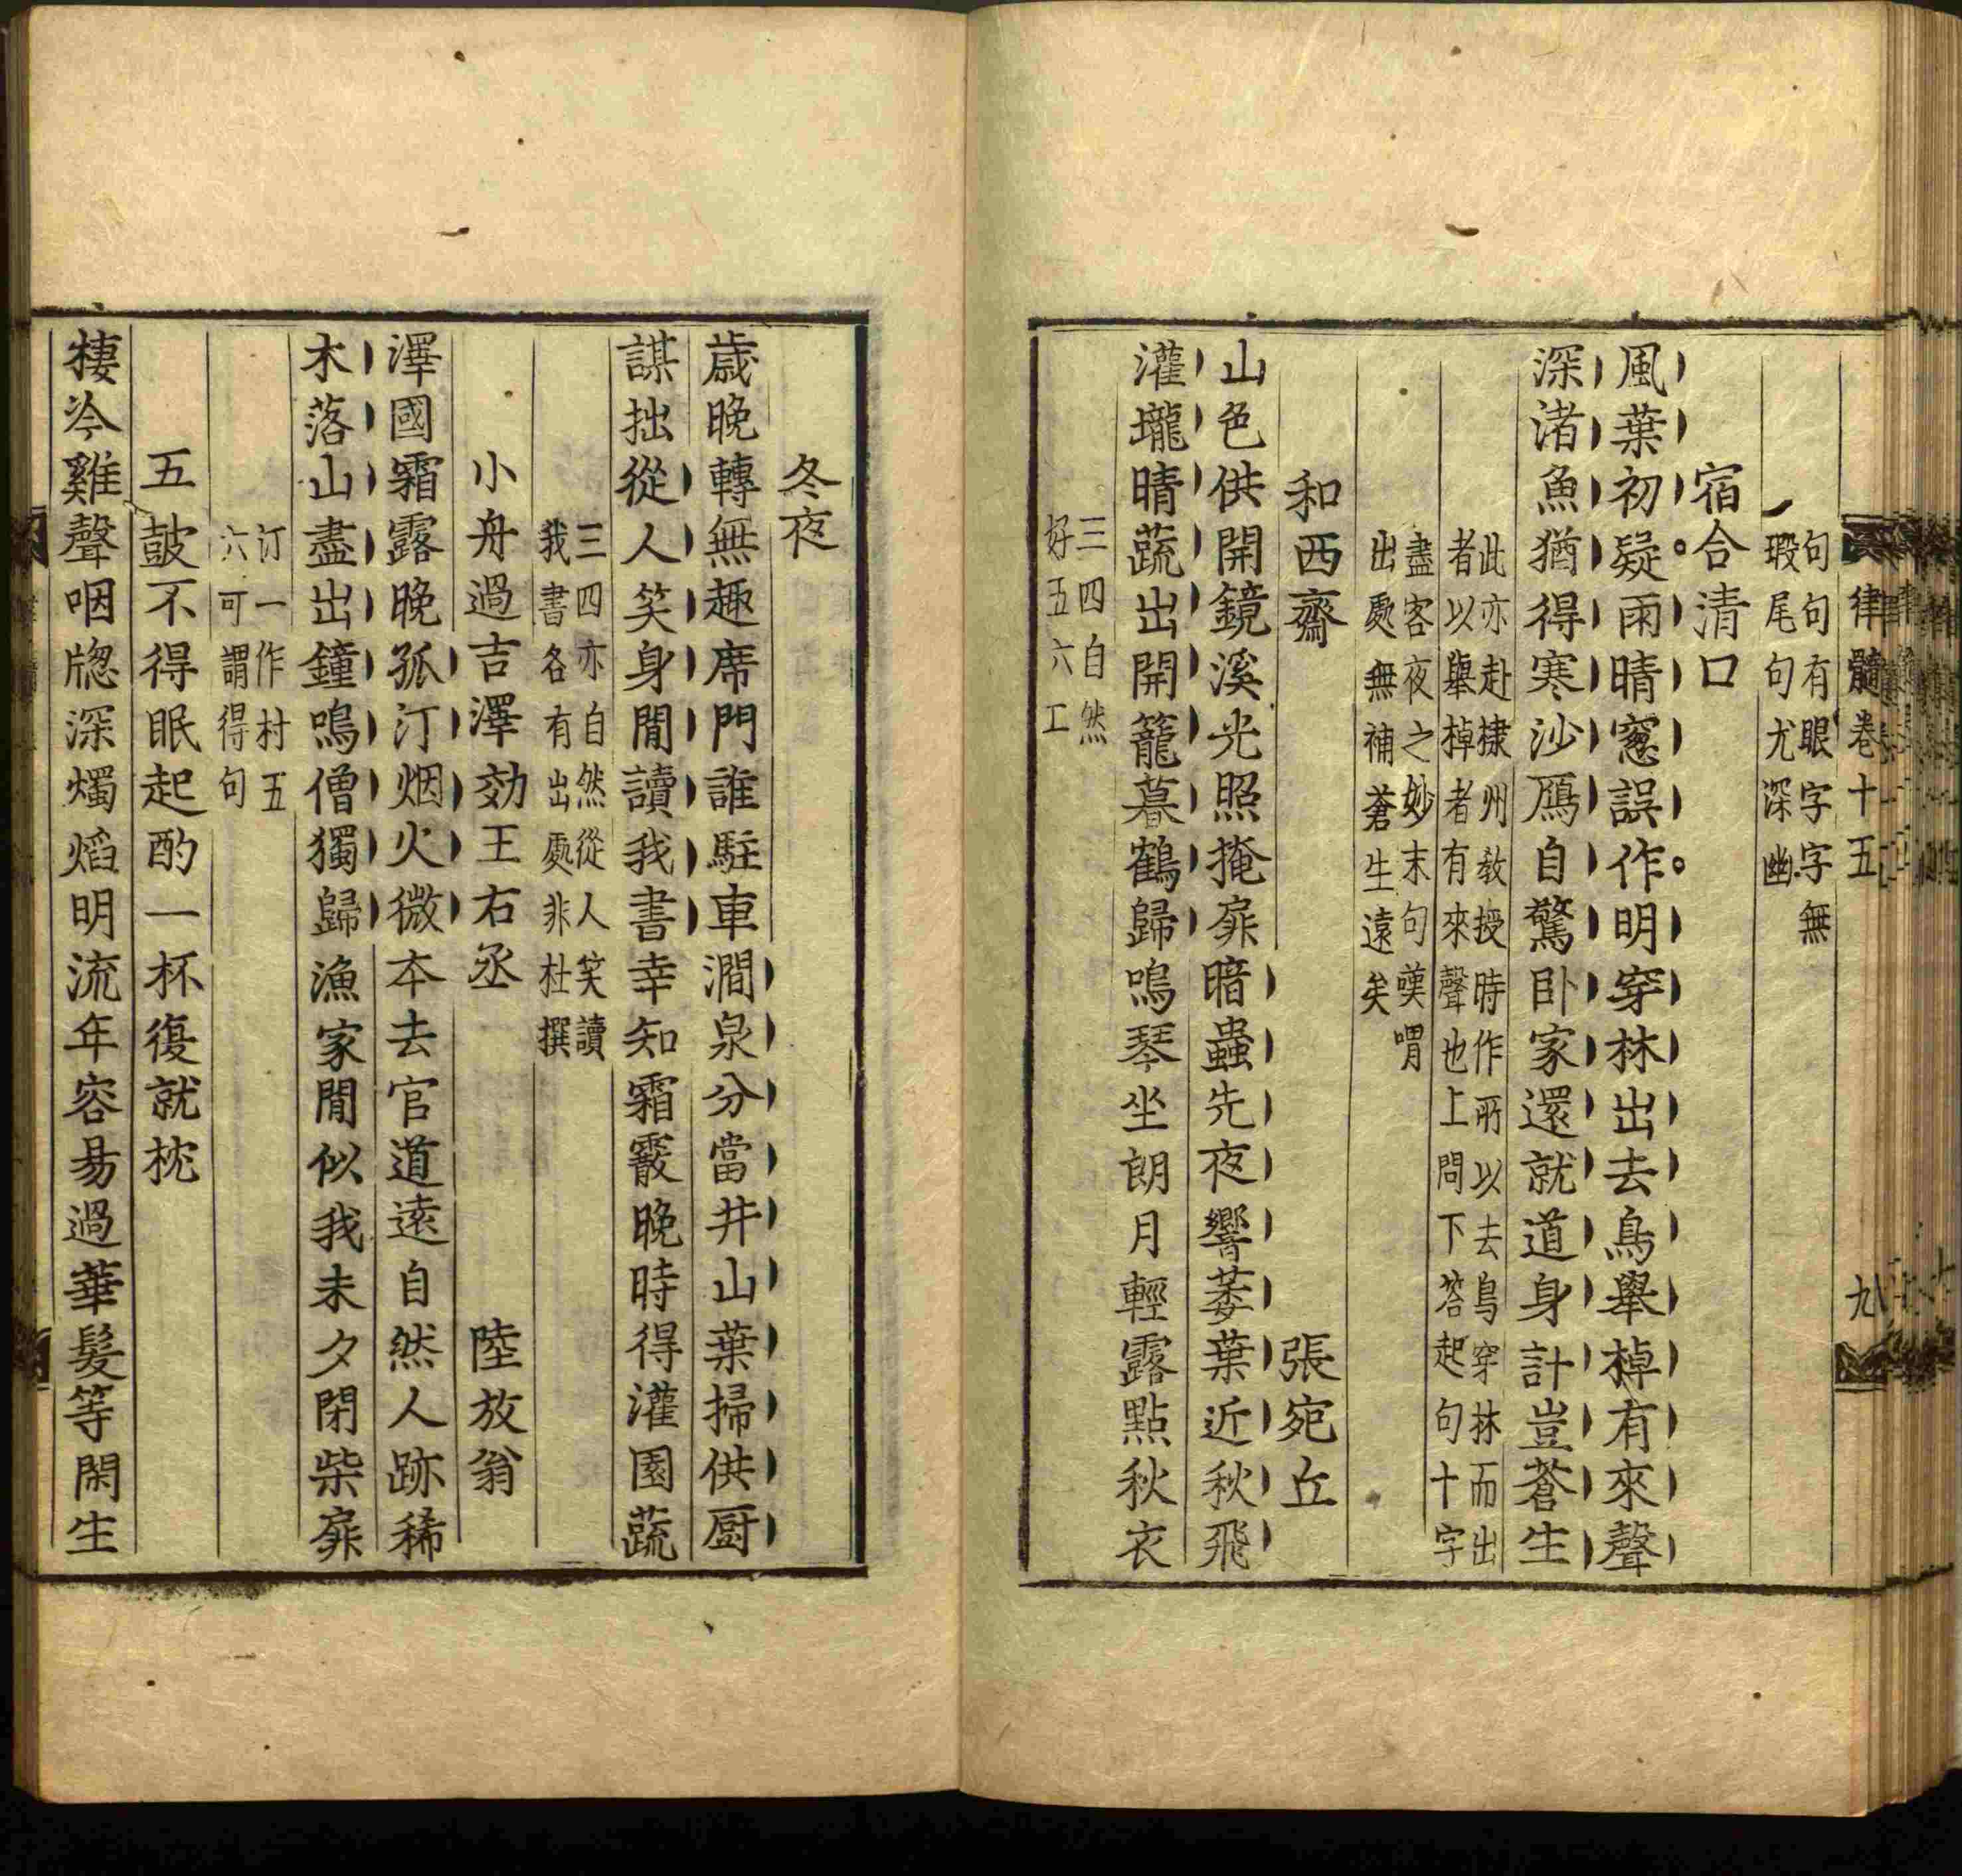 律髓卷十五　九
句句有眼字字無
瑕尾句尤深幽
宿合清口
風葉初疑雨晴窓誤作明穿林出去鳥舉棹有來聲
深渚魚猶得寒沙鴈自驚卧家還就道身計豈蒼生
此亦赴棣州教授時作所以去鳥穿林而出
者以舉棹者有來聲也上問下答起句十字
盡客夜之妙末句嘆喟
出處無補蒼生遠矣
和西齋　張宛丘
山色供開鏡溪光照掩扉暗蟲先夜響萎葉近秋飛
灌壠晴蔬出開籠暮鶴歸鳴琴坐朗月輕露點秋衣
三四自然
好五六工
冬夜
歲晚轉無趣席門誰駐車澗泉分當井山葉掃供厨
謀拙從人笑身閒讀我書幸知霜霰晚時得灌園蔬
三四亦自然從人笑讀
我書各有出處非杜撰
小舟過吉澤効王右丞　陸放翁
澤國霜露晚孤汀烟火微本去官道遠自然人跡稀
木落山盡出鐘鳴僧獨歸漁家閒似我未夕閉柴扉
汀一作村五
六可謂得句
五鼓不得眠起酌一杯復就枕
棲冷雞聲咽牕深燭焰明流年容易過華髮等閑生